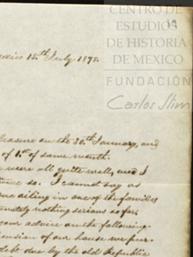 CENTRO DE
ESTUDIOS
DE HISTORIA
DE MEXICO
FUNDACIÓN
Carlos Slim
15th July 187
leasure on the 20th January, and
of 1st of same month.
were all quite well, and I
so. I cannot say as
ailing in one of the families
nately nothing serious so far.
your advice on the following:
of our house we pur-
debt due by the old Republic